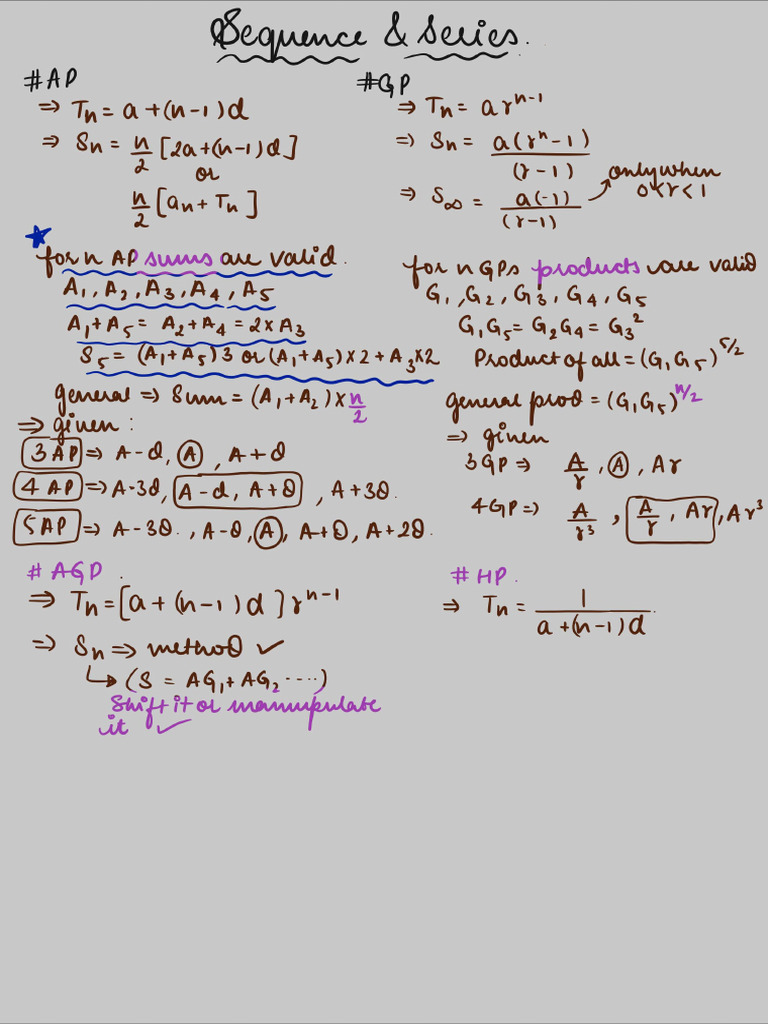 Sequence & Series.
#AP
⇒ Tn = a + (n-1)d
⇒ Sn = n/2 [2a + (n-1)d]
or
n/2 [an + Tn]
★ for n AP sums are valid.
A1, A2, A3, A4, A5
A1 + A5 = A2 + A4 = 2 × A3
S5 = (A1 + A5) 3 or (A1 + A5) × 2 + A3 × 2
general ⇒ Sum = (A1 + A2) × n/2
⇒ given:
3 AP ⇒ A-d, A, A+d
4 AP ⇒ A-3d, A-d, A+d, A+3d.
5 AP ⇒ A-3d., A-d, A, A+d, A+2d.
#GP
⇒ Tn = ar^n-1
⇒ Sn = a(r^n - 1)/(r-1)
⇒ S∞ = a(-1)/(r-1) → only when 0<r<1
for n GPs products are valid
G1, G2, G3, G4, G5
G1G5 = G2G4 = G3^2
Product of all = (G1G5)^5/2
general prod = (G1G5)^n/2
⇒ given
3GP ⇒ A/r, A, Ar
4GP ⇒ A/r^3, A/r, Ar, Ar^3
# AGP.
⇒ Tn = [a + (n-1)d] r^n-1
⇒ Sn ⇒ method ✓
↳ (S = AG1 + AG2 ....)
Shift it or manupulate
it ✓
# HP.
⇒ Tn = 1/a + (n-1)d.